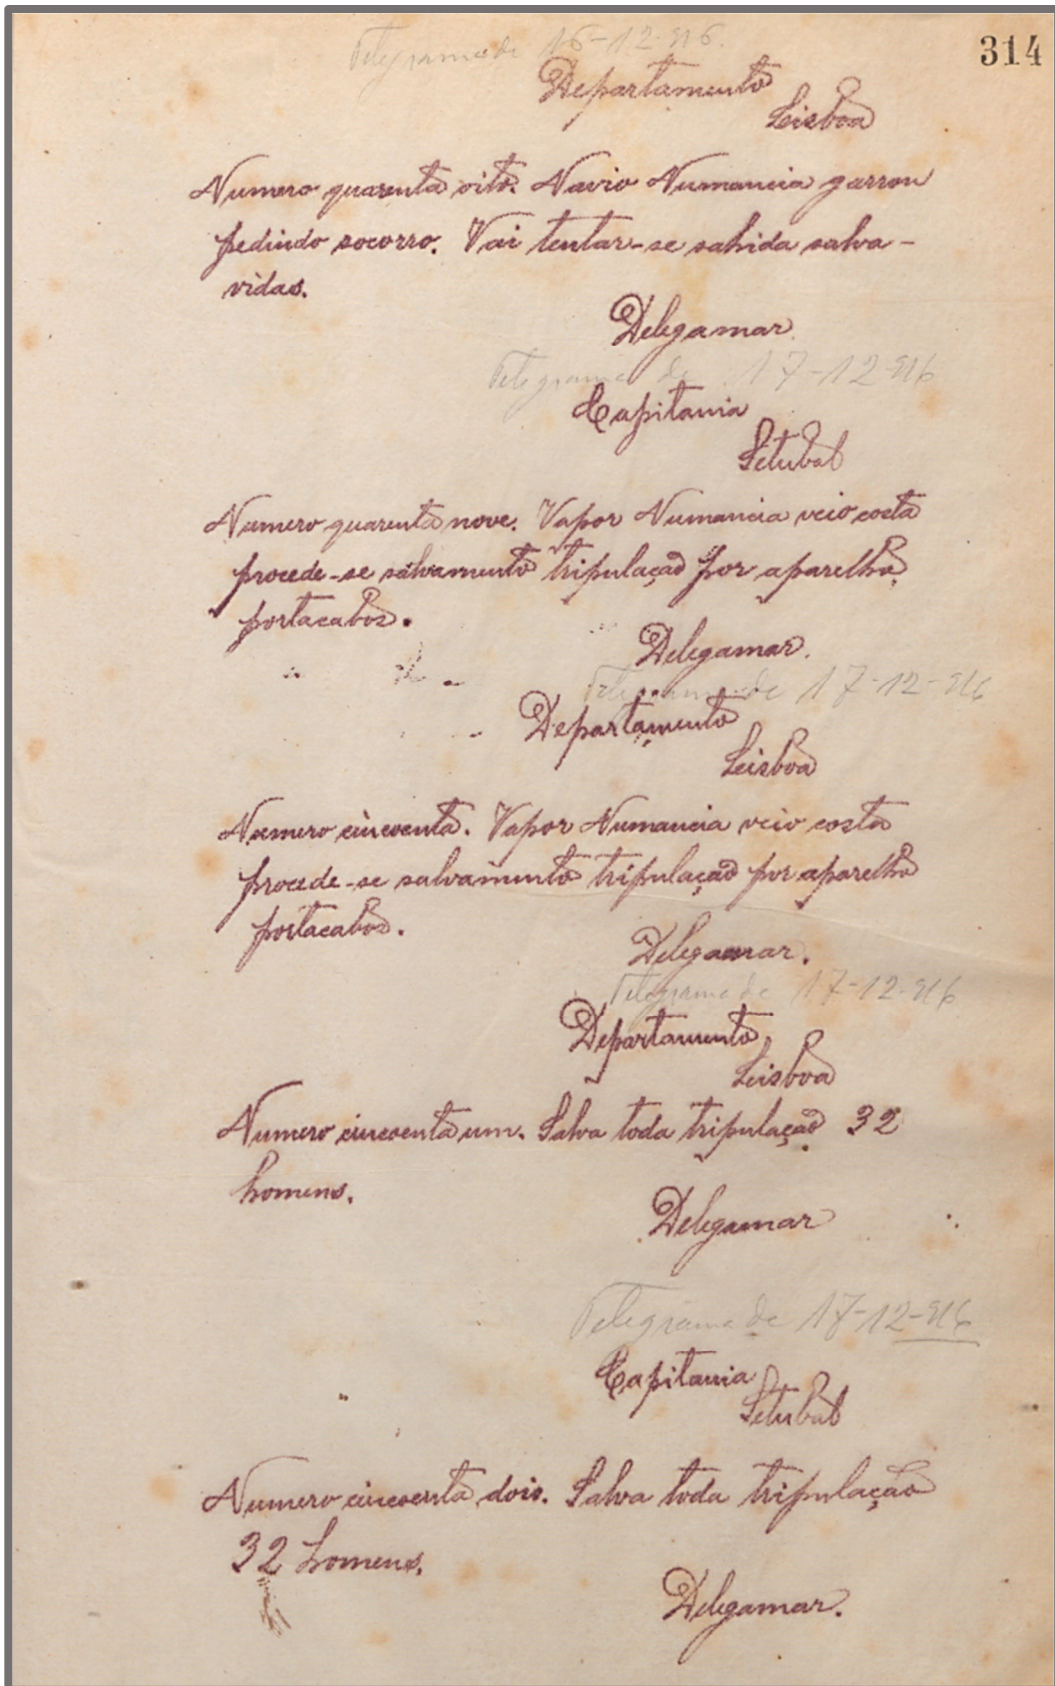 Telegrama de 16-12-916.
314
Departamento
Lisboa
Numero quarenta oito. Navio Numancia garrou
pedindo socorro. Vai tentar-se sahida salva-
vidas.
Delegamar.
Telegrama de 17-12-916
Capitania
Setubal
Numero quarenta nove. Vapor Numancia veio costa
procede-se salvamento tripulação por aparelho
portacabos.
Delegamar.
Telegrama de 17-12-916
Departamento
Lisboa
Numero cincoenta. Vapor Numancia veio costa
procede-se salvamento tripulação por aparelho
portacabos.
Delegamar.
Telegrama de 17-12-916
Departamento
Lisboa
Numero cincoenta um. Salva toda tripulação 32
homens.
Delegamar
Telegrama de 17-12-916
Capitania
Setubal
Numero cincoenta dois. Salva toda tripulação
32 homens.
Delegamar.